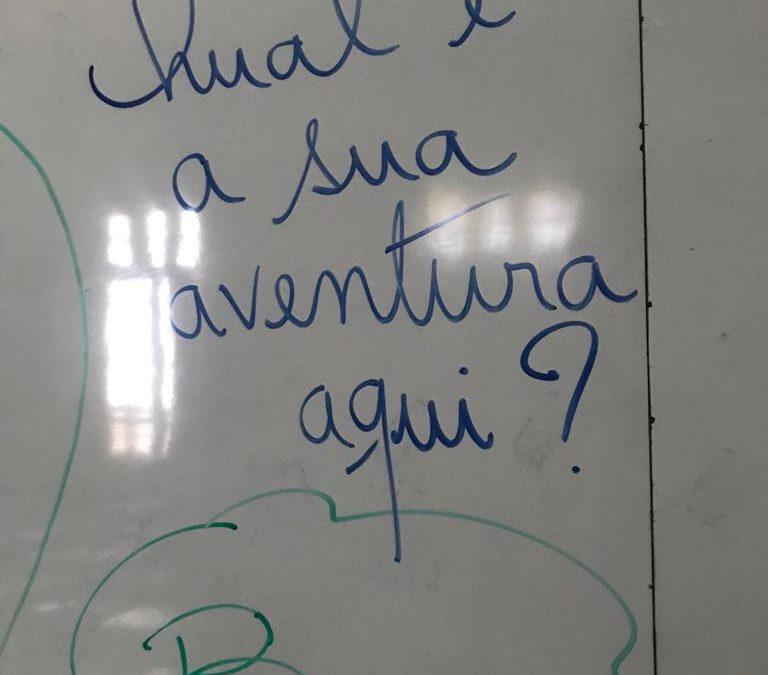 Qual é
a sua
aventura
aqui?